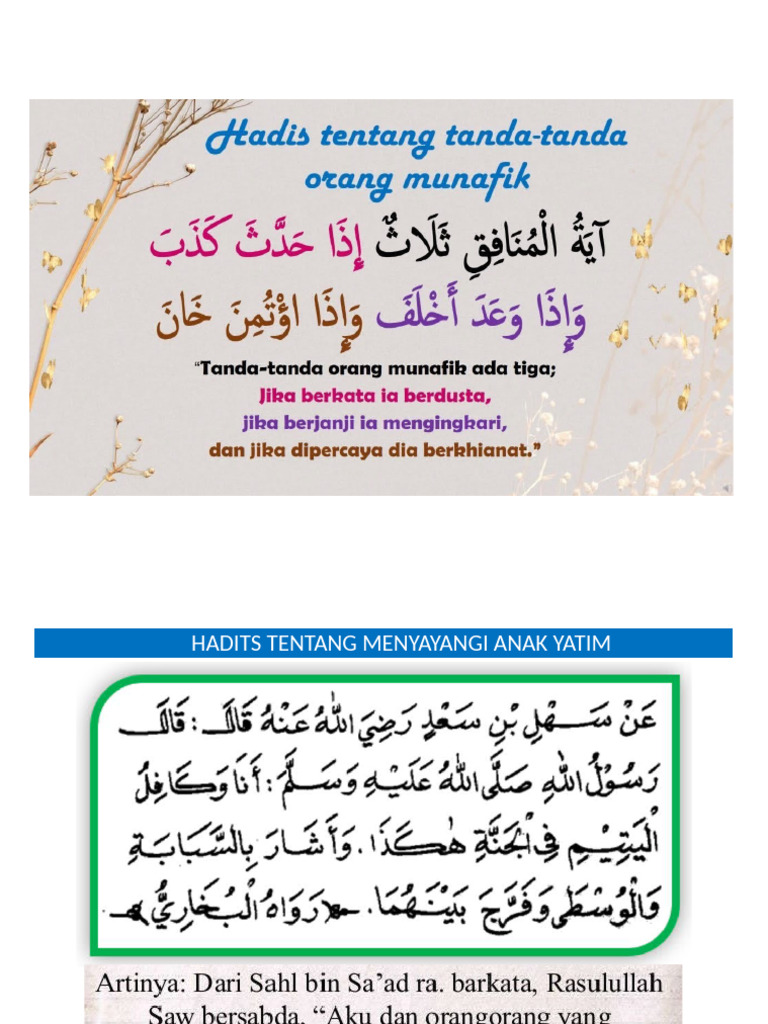 Hadis tentang tanda-tanda
orang munafik
آيَةُ الْمُنَافِقِ ثَلَاثٌ إِذَا حَدَّثَ كَذَبَ
وَإِذَا وَعَدَ أَخْلَفَ وَإِذَا اؤْتُمِنَ خَانَ
“Tanda-tanda orang munafik ada tiga;
Jika berkata ia berdusta,
jika berjanji ia mengingkari,
dan jika dipercaya dia berkhianat.”
HADITS TENTANG MENYAYANGI ANAK YATIM
عَنْ سَهْلِ بْنِ سَعْدٍ رَضِيَ اللهُ عَنْهُ قَالَ : قَالَ
رَسُوْلُ اللهِ صَلَّى اللهُ عَلَيْهِ وَسَلَّمَ : أَنَا وَكَافِلُ
الْيَتِيْمِ فِى الْجَنَّةِ هٰكَذَا . وَأَشَارَ بِالسَّبَابَةِ
وَالْوُسْطَى وَفَرَّجَ بَيْنَهُمَا . رَوَاهُ الْبُخَارِيُّ
Artinya: Dari Sahl bin Sa’ad ra. barkata, Rasulullah
Saw bersabda, “Aku dan orangorang yang